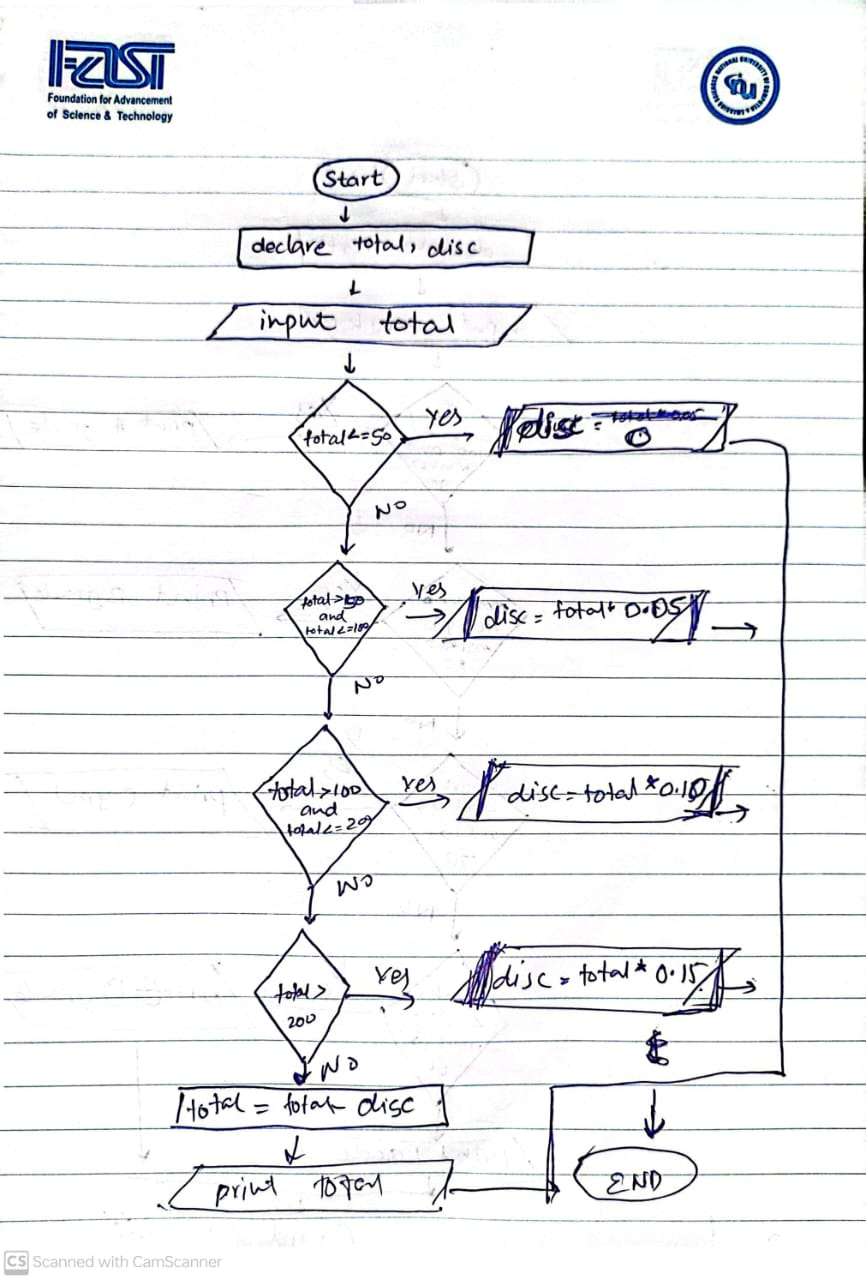 FAST
Foundation for Advancement
of Science & Technology
NATIONAL UNIVERSITY
Start
declare total, disc
input total
total<=50
Yes
disc = 0
NO
total>50
and
total<=100
Yes
disc = total* 0.05
NO
total>100
and
total<=200
Yes
disc = total * 0.10
NO
total >
200
Yes
disc = total * 0.15
NO
total = total - disc
print total
END
CS Scanned with CamScanner